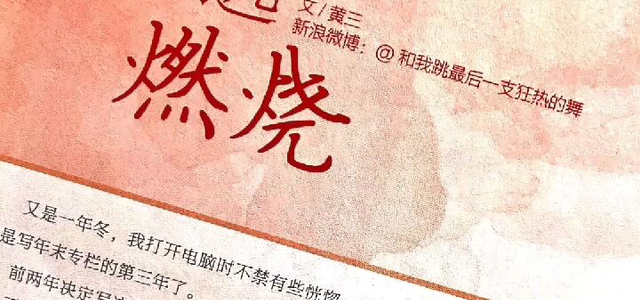 文/黄三
新浪微博：@和我跳最后一支狂热的舞
燃烧
又是一年冬，我打开电脑时不禁有些恍惚
是写年末专栏的第三年了。
前两年决定写